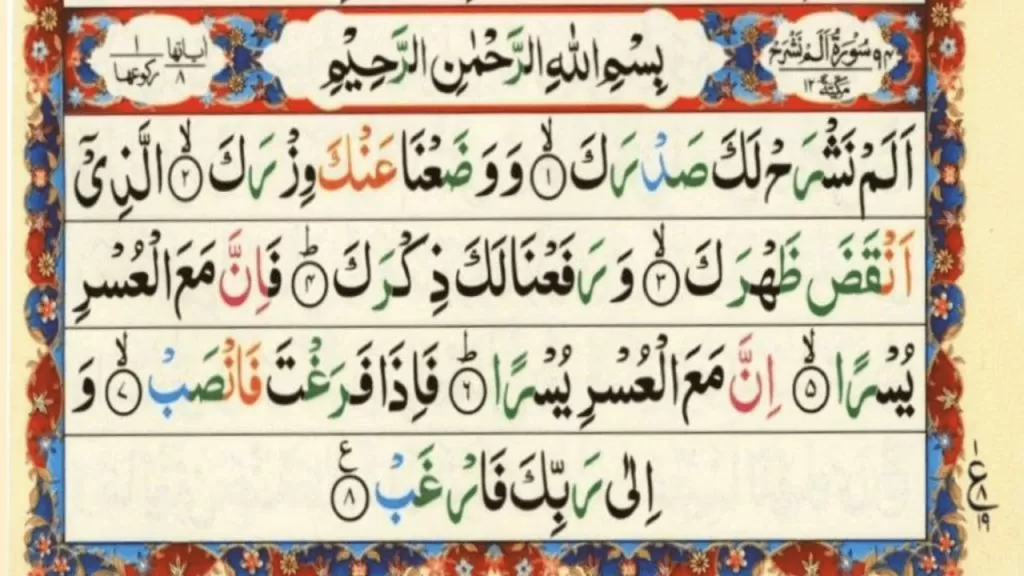 سُوْرَةُ اَلَمْ نَشْرَحْ ٩٤ مَكِّيَّةٌ ١٢
بِسْمِ اللّٰهِ الرَّحْمٰنِ الرَّحِيْمِ
اٰيَاتُهَا ٨ رُكُوْعُهَا ١
اَلَمْ نَشْرَحْ لَكَ صَدْرَكَ ۙ‏﴿١﴾ وَوَضَعْنَا عَنْكَ وِزْرَكَ ۙ‏﴿٢﴾ الَّذِيْۤ
اَنْقَضَ ظَهْرَكَ ۙ‏﴿٣﴾ وَرَفَعْنَا لَكَ ذِكْرَكَ ؕ‏﴿٤﴾ فَاِنَّ مَعَ الْعُسْرِ
يُسْرًا ۙ‏﴿٥﴾ اِنَّ مَعَ الْعُسْرِ يُسْرًا ؕ‏﴿٦﴾ فَاِذَا فَرَغْتَ فَانْصَبْ ۙ‏﴿٧﴾ وَ
اِلٰى رَبِّكَ فَارْغَبْ ‏﴿٨﴾ ع
١ ع ٨ ١٩